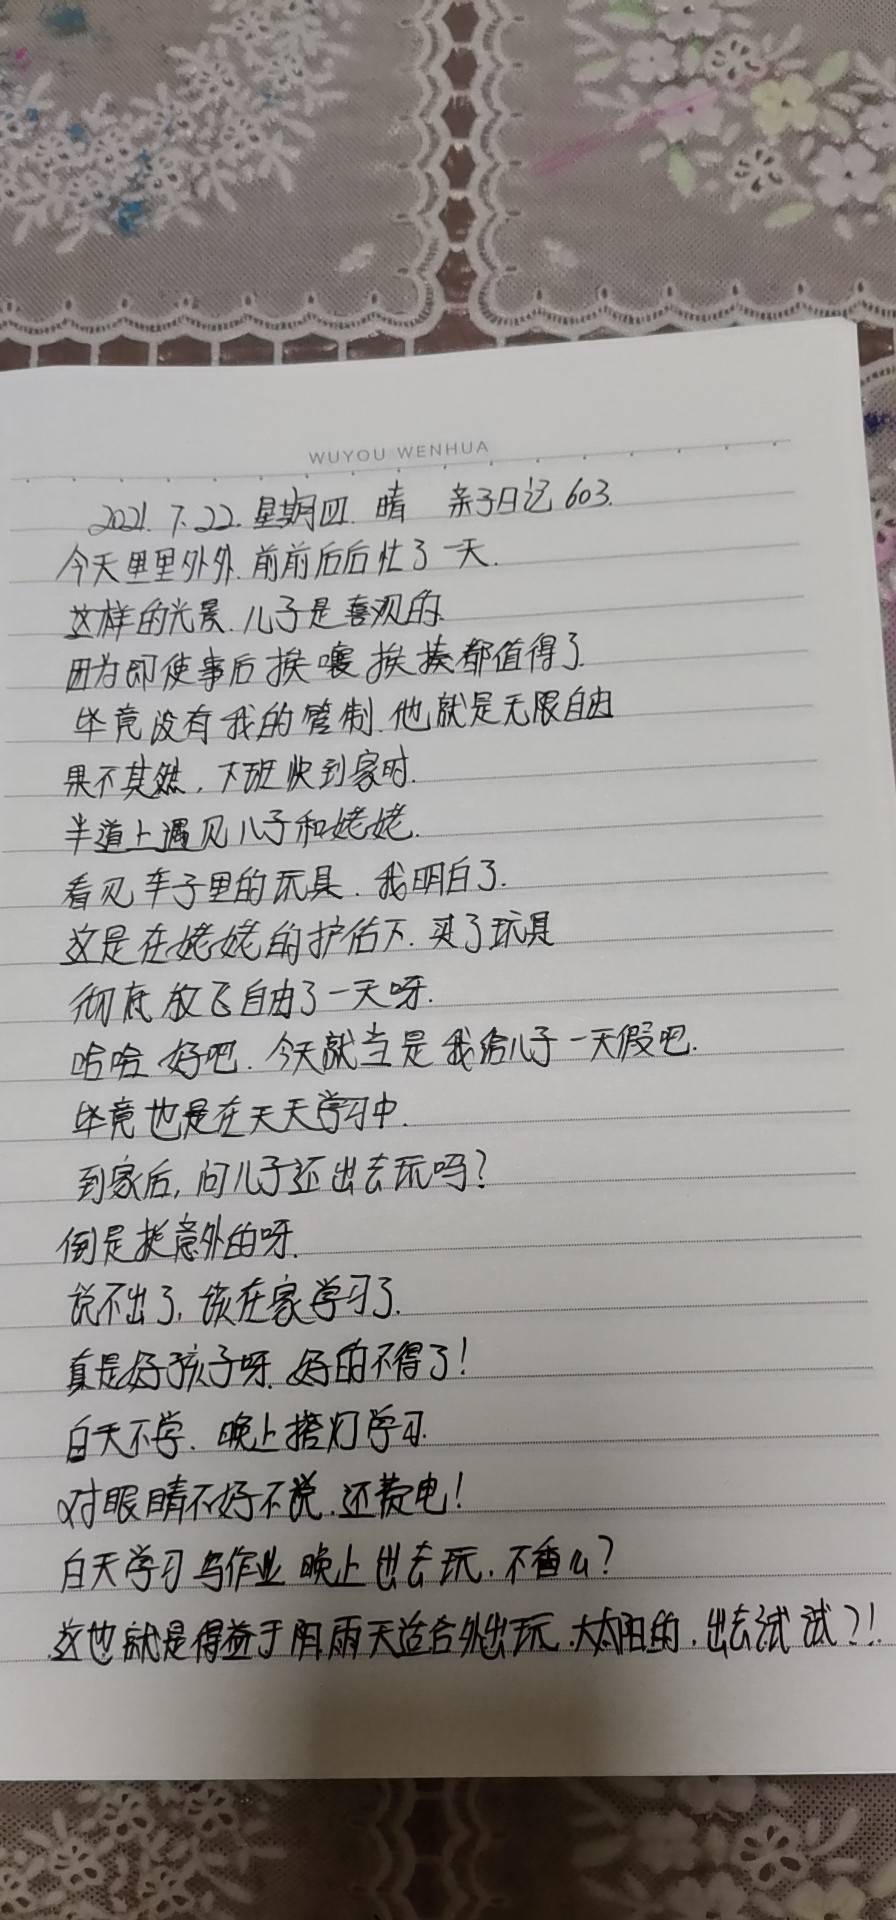 WUYOU WENHUA
2021.7.22.星期四.晴 亲子日记603.
今天里里外外.前前后后忙了一天.
这样的光景.儿子是喜欢的.
因为即使事后挨嚷挨揍都值得了.
毕竟没有我的管制.他就是无限自由
果不其然,下班快到家时.
半道上遇见儿子和姥姥.
看见车子里的玩具.我明白了.
这是在姥姥的护佑下.买了玩具
彻底放飞自由了一天呀.
哈哈 好吧.今天就当是我给儿子一天假吧.
毕竟也是在天天学习中.
到家后,问儿子还出去玩吗?
倒是挺意外的呀.
说不出了,该在家学习了.
真是好孩子呀.好的不得了!
白天不学.晚上搭灯学习.
对眼睛不好不说.还费电!
白天学习写作业 晚上出去玩.不香么?
这也就是得益于阴雨天适合外出玩.大太阳的.出去试试?!